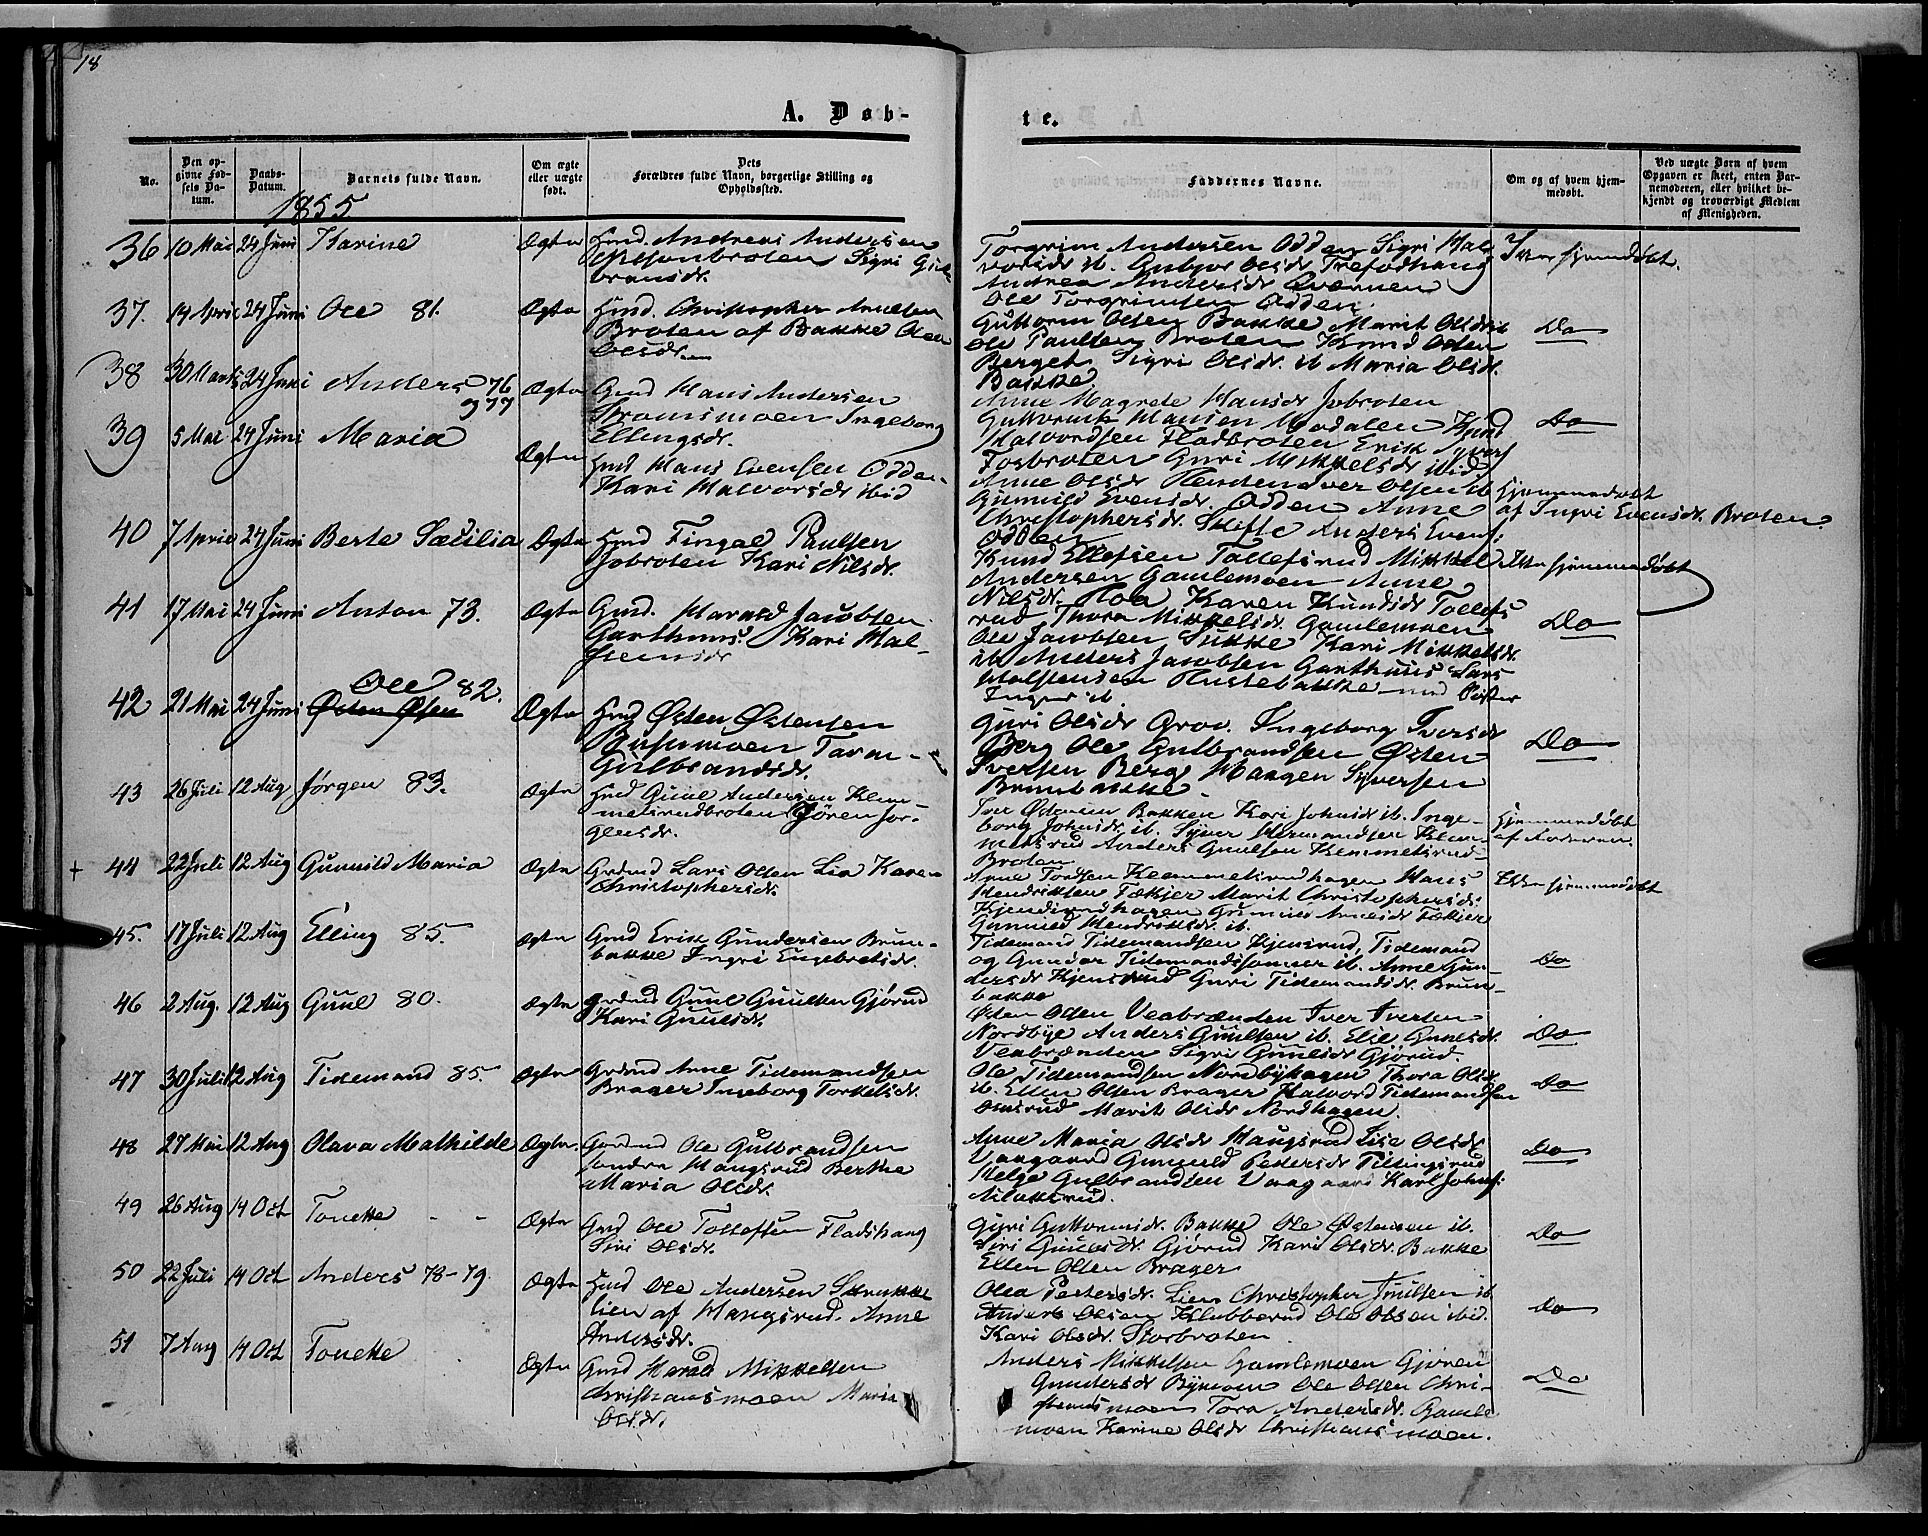 18
A. Døb-
te.
No.
Den op-
givne Fød-
sels Da-
tum.
Daabs-
Datum.
Barnets fulde Navn.
Om ægte
eller uægte
født.
Dets
Forældres fulde Navn, borgerlige Stilling og
Opholdssted.
Faddernes Navne.
Om og af hvem hjem-
medøbt.
Ved uægte Børn af hvem
Opgaven er skeet, enten Bar-
nemoderen, eller hvilket be-
kjendt og troværdigt Medlem
af Menigheden.
1855
36 10 Mai 24 Juni Karine Ægte Hmd. Andreas Andersen
Sigri Gul-
bransdr.
Torgrim Andersen Odden Sigri Hal-
vorsdr ib. Gubjør Olsdr Trefodhaug
Andrea Andersdr
Ole Torgrimsen Odden
Ikke hjemmedøbt.
37. 14 April 24 Juni Ole 81. Ægte Hmd. Christopher Arnesen
Broten af Bakke Olea
Olsdr.
Guttorm Olsen Bakke Marit Olsdr ib
Ole Paulsen Broten Knud Olsen
Berget Sigri Olsdr. ib Maria Olsdr.
Bakke
Do
38 30 Marts 24 Juni Anders 76
og 77
Ægte Gmd Hans Andersen
Bronsmoen Ingeborg
Ellingsdr.
Anne Magrete Hansdr Jobroten
Guttorm Hansen Modalen Knud
Halvordsen Fladbroten Erik Syvers
Fosbroten Guri Mikkelsdr ibid
Do
39 5 Mai 24 Juni Maria
Ægte Hmd Hans Evensen Odden
Kari Halvorsdr ibid
Anne Olsdr Iver Olsen ib
Gunnild Evensdr. Odden Anne
Christophersdr. Skifte Anders Evens:
Odden
hjemmedøbt
af Ingri Evensdr. Broten
40 7 April 24 Juni Berte Sæcilia Ægte Hmd Fingal Paulsen
Jobroten Kari Nilsdr.
Knud Ellefsen Tollefsrud Mikkel
Andersen Gamlemoen Anne
Nilsdr. Moa Karen Knudsdr Tollefs
rud Thora Mikkelsdr. Gamlemoen
Ikke hjemmedøbt
41 17 Mai 24 Juni Anton 73. Ægte Gmd. Harald Jacobsen
Garthuus Kari Hal-
steensdr
Ole Jacobsen Sukke Kari Mikkelsdr.
ib Anders Jacobsen Garthuus Lars
Halstensen Hustebakke med Søster
Inger ib
Do
42 21 Mai 24 Juni Ole 82.
Østen Olsen
Ægte Hmd Østen Østensen
Busumoen Taran
Gulbrandsdr.
Guri Olsdr Grov. Ingeborg Iversdr
Berg Ole Gulbrandsen Østen
Iversen Berg Haagen Syversen
Brunbakke
Do
43 26 Juli 12 Aug Jørgen 83. Ægte Hmd Guul Andersen Klem-
metsrudbroten Jøren Jør-
gensdr.
Iver Østensen Bakken Kari Johnsdr ib. Inge-
borg Johnsdr. ib. Syver Hermandsen Klem-
metsrud Anders Guulsen Klemmetsrud-
Broten
hjemmedøbt
af Faderen.
44 22 Juli 12 Aug Gunnild Maria Ægte Grdmd Lars Olsen Lia Karen
Christophersdr.
Arne Tordsen Klemmetsrudhagen Hans
Hendriksen Fækjer Marit Christophersdr:
Kjendsrudhagen Gunnild Arnesdr Fækjer
Gunnild Hendriksdr. ib.
Ikke hjemmedøbt
45. 17 Juli 12 Aug Elling 85. Ægte Gmd Erik Gundersen Brun-
bakke Ingri Engebretsdr.
Tidemand Tidemandsen Kjensrud, Tidemand
og Gunder Tidemandssønner ib. Anne Gun-
dersdr Kjensrud Guri Tidemandsdr. Brun-
bakke
Do
46 2 Aug. 12 Aug Guul 80. Ægte Grdmd Guul Guulsen Gjørud
Kari Guulsdr.
Østen Olsen Veabrænden Iver Iversen
Nordbye Anders Guulsen ib. Elie Guulsdr.
Veabrænden Sigri Guulsdr Gjørud.
Do
47 30 Juli 12 Aug Tidemand 85. Ægte Grdmd Arne Tidemandsen
Brager Ingeborg Torkelsdr.
Ole Tidemandsen Nordbyhagen Thora Olsdr
ib. Ellen Olsen Brager Halvord Tidemandsen
Omsrud Marit Olsdr Nordhagen.
Do
48 27 Mai 12 Aug Olava Mathilde Ægte. Gordmd Ole Gulbrandsen
søndre Haugsrud Berthe
Maria Olsdr.
Anne Maria Olsdr Haugsrud Lise Olsdr
Vaagaard Gunnild Pedersdr Tillingsrud
Helge Gulbrandsen Vaagaard Karl Johns:
Do
49 26 Aug 14 Oct Tonette - - Ægte Gmd Ole Tollefsen Fladshaug
Siri Olsdr.
Gyri Guttormsdr. Bakke Ole Østensen ib.
Siri Guulsdr. Gjørud Kari Olsdr. Bakke
Ellen Olsen Brager
Do
50 22 Juli 14 Oct Anders 78-79. Ægte Hmd Ole Andersen Strukke
lien af Haugsrud. Anne
Andersdr.
Olea Pedersdr. Lien Christopher Knudsen ib
Anders Olsen Klubberud Ole Olsen ibid.
Kari Olsdr. Storbroten
Do
51 7 Aug 14 Oct Tonette Ægte Gmd Harald Mikkelsen
Christiansmoen Maria
Olsdr.
Anders Mikkelsen Gamlemoen Gjøren
Gundersdr Bymoen Ole Olsen Chri-
stiansmoen Tora Andersdr. Gamle
moen Karine Olsdr Christiansmoen.
Do